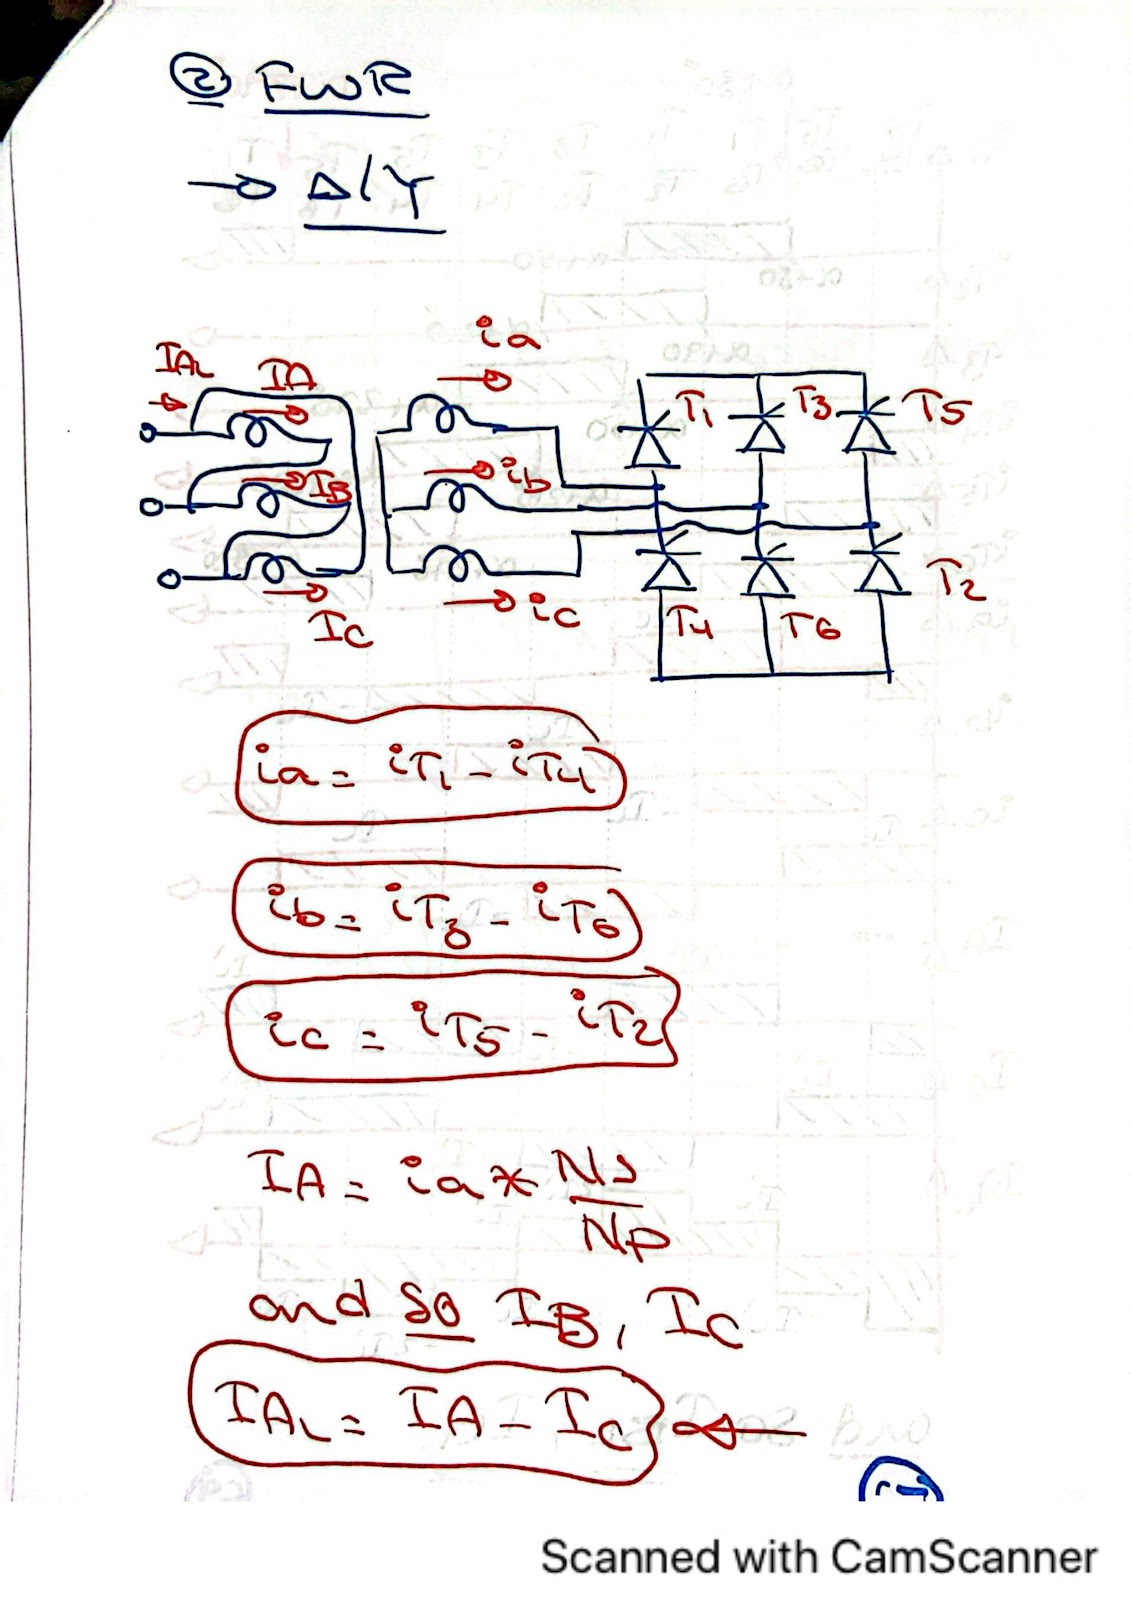 ② FWR
→ Δ/Y
ia
IAL IA
T1 T3 T5
ib
IB
T2
ic
IC
T4 T6
ia = iT1 - iT4
ib = iT3 - iT6
ic = iT5 - iT2
IA = ia * Ns/Np
and so IB, IC
IAL = IA - IC
Scanned with CamScanner